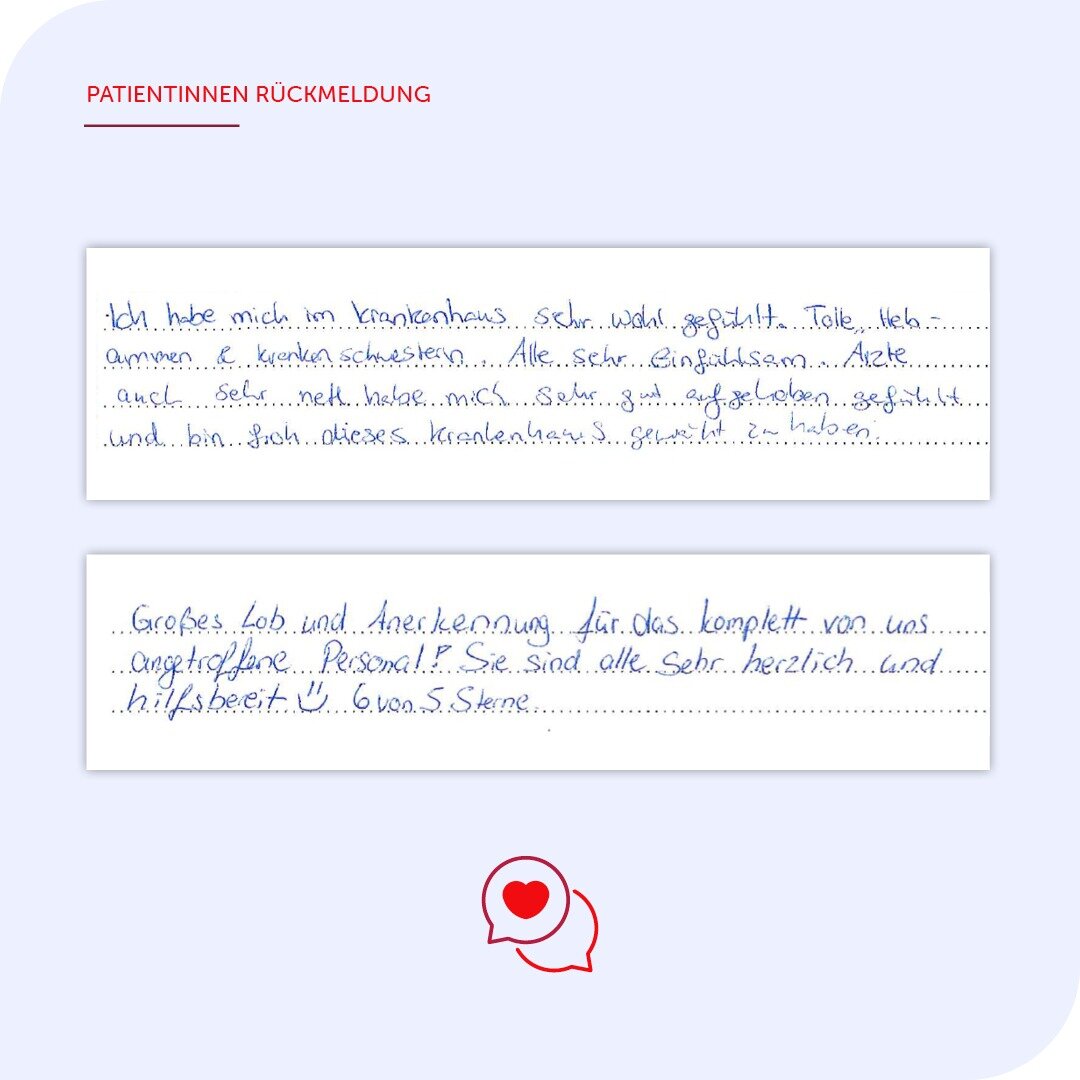 PATIENTINNEN RÜCKMELDUNG
Ich habe mich im Krankenhaus sehr wohl gefühlt. Tolle Heb-
ammen & Krankenschwestern. Alle sehr einfühlsam. Ärzte
auch sehr nett habe mich sehr gut aufgehoben gefühlt
und bin froh dieses Krankenhaus gewählt zu haben.
Großes Lob und Anerkennung für das komplett von uns
angetroffene Personal! Sie sind alle sehr herzlich und
hilfsbereit Ü 6 von 5 Sterne.